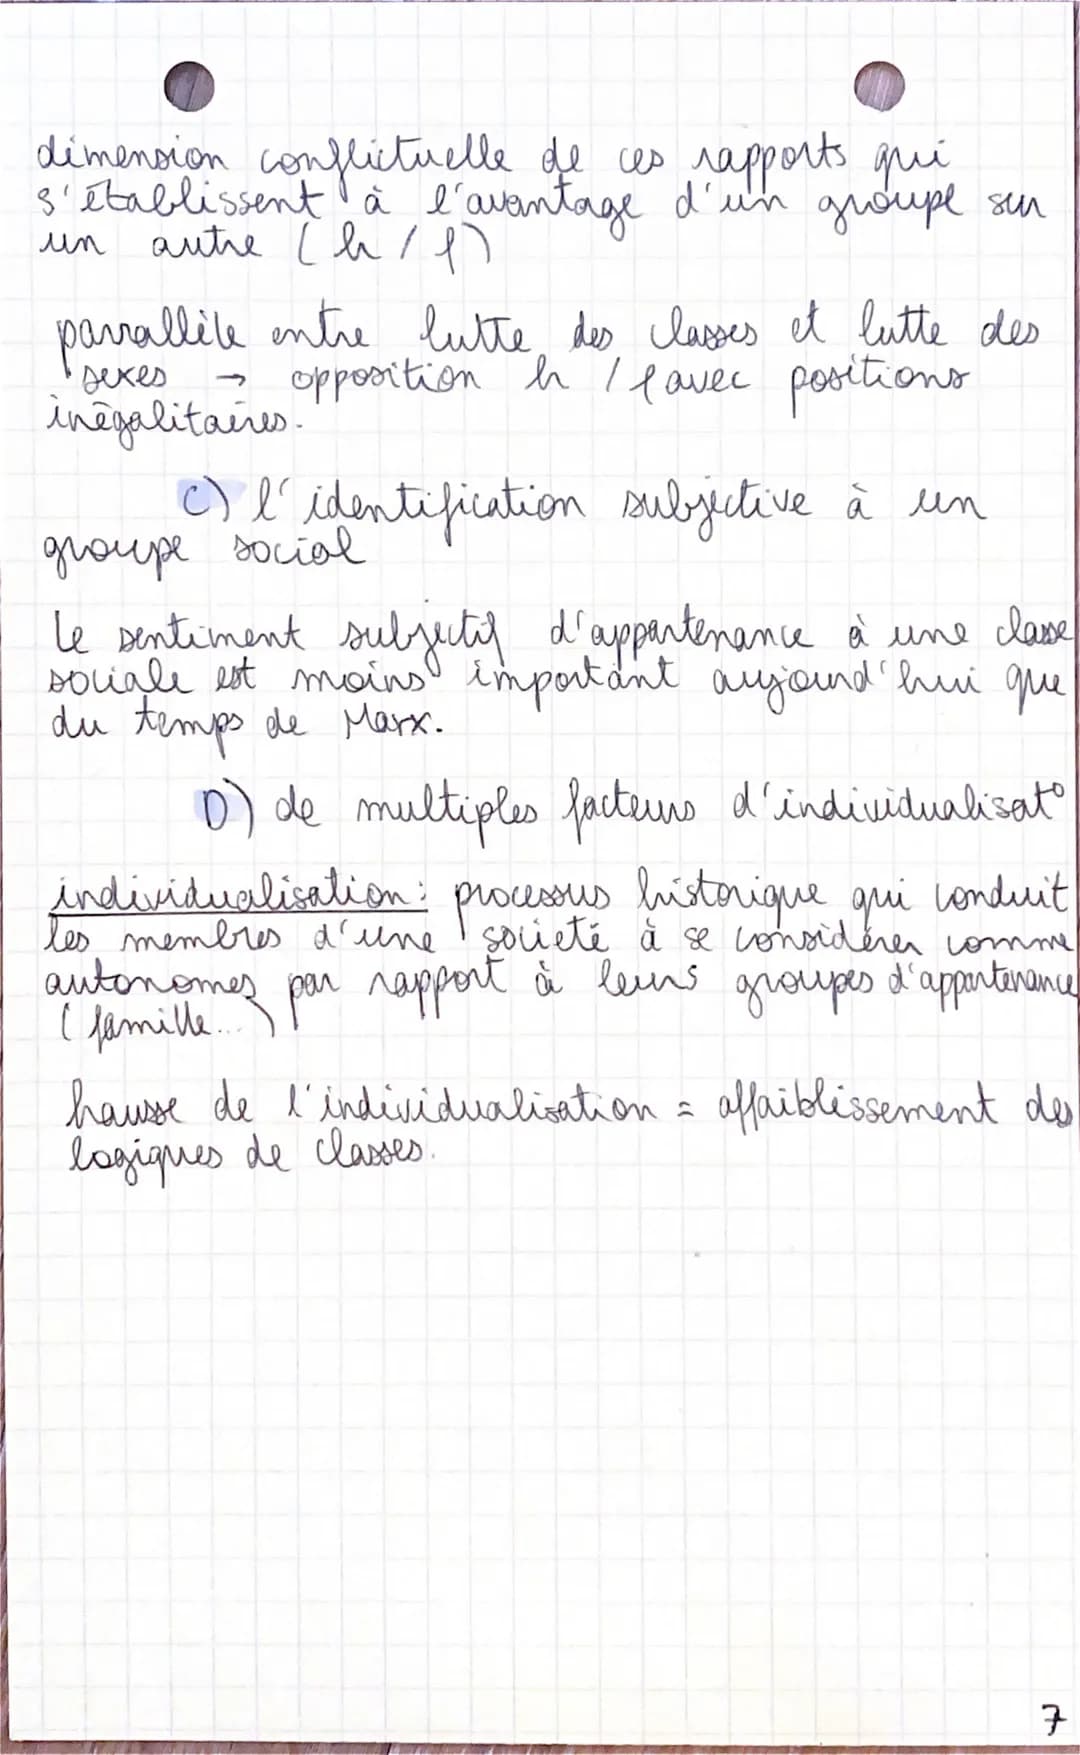 dimension conflictuelle de ces rapports qui
s'établissent à l'avantage d'un groupe sur
un autre (h/f)
parrallèle entre lutte des classes et lutte des
sexes → opposition h/f avec positions
inégalitaires.
C) l'identification subjective à un
groupe social
Le sentiment subjectif d'appartenance à une classe
sociale est moins important aujourd'hui que
du temps de Marx.
D) de multiples facteurs d'individualisat°
individualisation : processus historique qui conduit
les membres d'une société à se considérer comme
autonomes par rapport à leurs groupes d'appartenance
(famille...)
hausse de l'individualisation = affaiblissement des
logiques de classes.
7